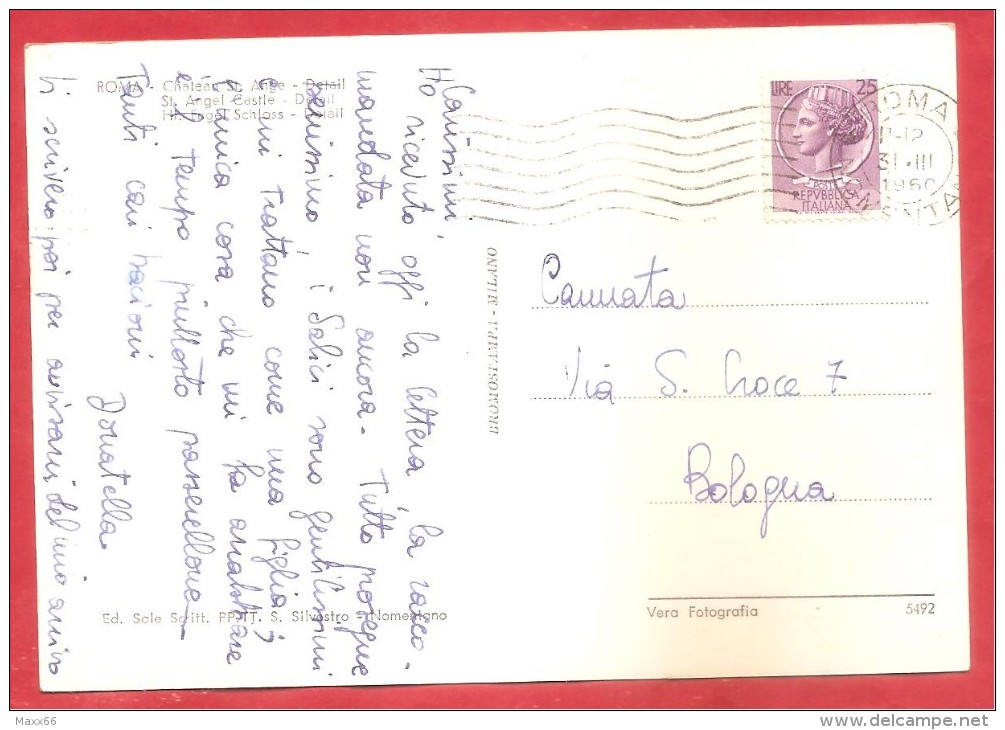 ROMA - Château St. Ange - Detail
St. Angel Castle - Detail
Hl. Engel Schloss - Detail
Carissimi
Ho ricevuto oggi la lettera, la racco-
mandata non ancora. Tutto prosegue
benissimo i Salici sono gentilissimi
e mi trattano come una figlia;
l'unica cosa che mi fa arrabbiare
è il tempo piuttosto
Tanti cari bacioni
Donatella
Vi scriverò poi per avvisarvi del mio arrivo
Ed. Sale Scritt. PP. TT. S. Silvestro - Nomentano
BROMOSTAMPA - MILANO
LIRE 25
POSTE
REPVBBLICA
ITALIANA
ROMA
31 III
1960
Cannata
Via S. Croce 7
Bologna
Vera Fotografia
5492
Maxx66
www.delcampe.net